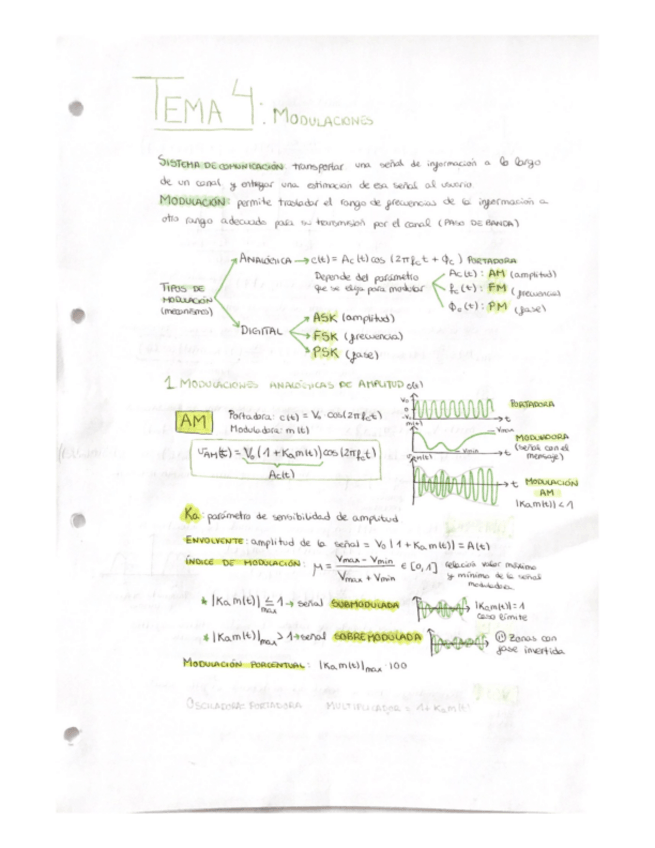 TEMA 4: MODULACIONES
SISTEMA DE COMUNICACIÓN: transportar una señal de informacion a lo largo
de un canal y entregar una estimacion de esa señal al usuario
MODULACIÓN: permite trasladar el rango de frecuencias de la informacion a
otro rango adecuado para su transmision por el canal (PASO DE BANDA)
TIPOS DE MODULACIÓN (mecanismos)
ANALÓGICA → c(t) = Ac(t) cos (2πfct + φc) PORTADORA
Depende del parámetro que se elija para modular
Ac(t): AM (amplitud)
fc(t): FM (frecuencia)
φc(t): PM (fase)
DIGITAL
ASK (amplitud)
FSK (frecuencia)
PSK (fase)
1. MODULACIONES ANALÓGICAS DE AMPLITUD
AM
Portadora: c(t) = V₀ · cos(2πfct)
Moduladora: m(t)
υAM(t) = V₀ (1 + Kam(t)) cos(2πfct)
Ac(t)
c(t)
V₀
0
-V₀
t
PORTADORA
m(t)
Vmax
Vmin
t
MODULADORA
(señal con el mensaje)
υAM(t)
t
MODULACIÓN AM
|Kam(t)| < 1
Ka: parámetro de sensibilidad de amplitud
ENVOLVENTE: amplitud de la señal = V₀ |1 + Kam(t)| = A(t)
ÍNDICE DE MODULACIÓN: μ = (Vmax - Vmin) / (Vmax + Vmin) ∈ [0,1] relación valor máximo
y mínimo de la señal
moduladora
* |Kam(t)|max ≤ 1 → señal SUBMODULADA
|Kam(t)| = 1
caso límite
* |Kam(t)|max > 1 → señal SOBREMODULADA
Zonas con
fase invertida
MODULACIÓN PORCENTUAL: |Kam(t)|max · 100
OSCILADORA: PORTADORA MULTIPLICADOR = 1 + Kam(t)